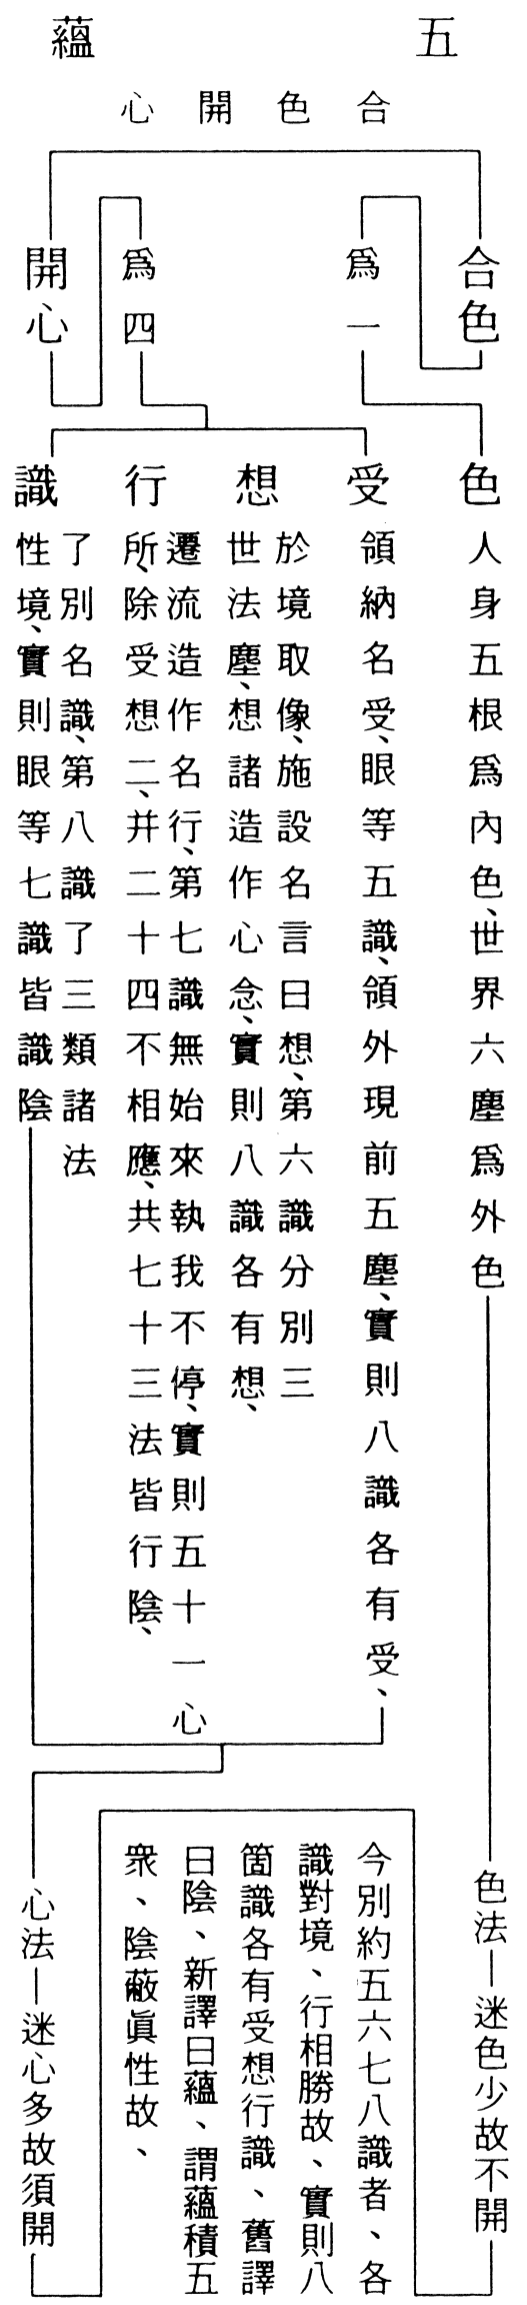 五蘊
合色開心
合色
為一
為四
開心
色
人身五根為內色、世界六塵為外色
受
領納名受、眼等五識、領外現前五塵、實則八識各有受、
想
於境取像、施設名言曰想、第六識分別三
世法塵、想諸造作心念、實則八識各有想、
行
遷流造作名行、第七識無始來執我不停、實則五十一心
所、除受想二、并二十四不相應、共七十三法皆行陰、
識
了別名識、第八識了三類諸法
性境、實則眼等七識皆識陰
色法—迷色少故不開
今別約五六七八識者、各
識對境、行相勝故、實則八
箇識各有受想行識、舊譯
曰陰、新譯曰蘊、謂蘊積五
衆、陰蔽眞性故、
心法—迷心多故須開